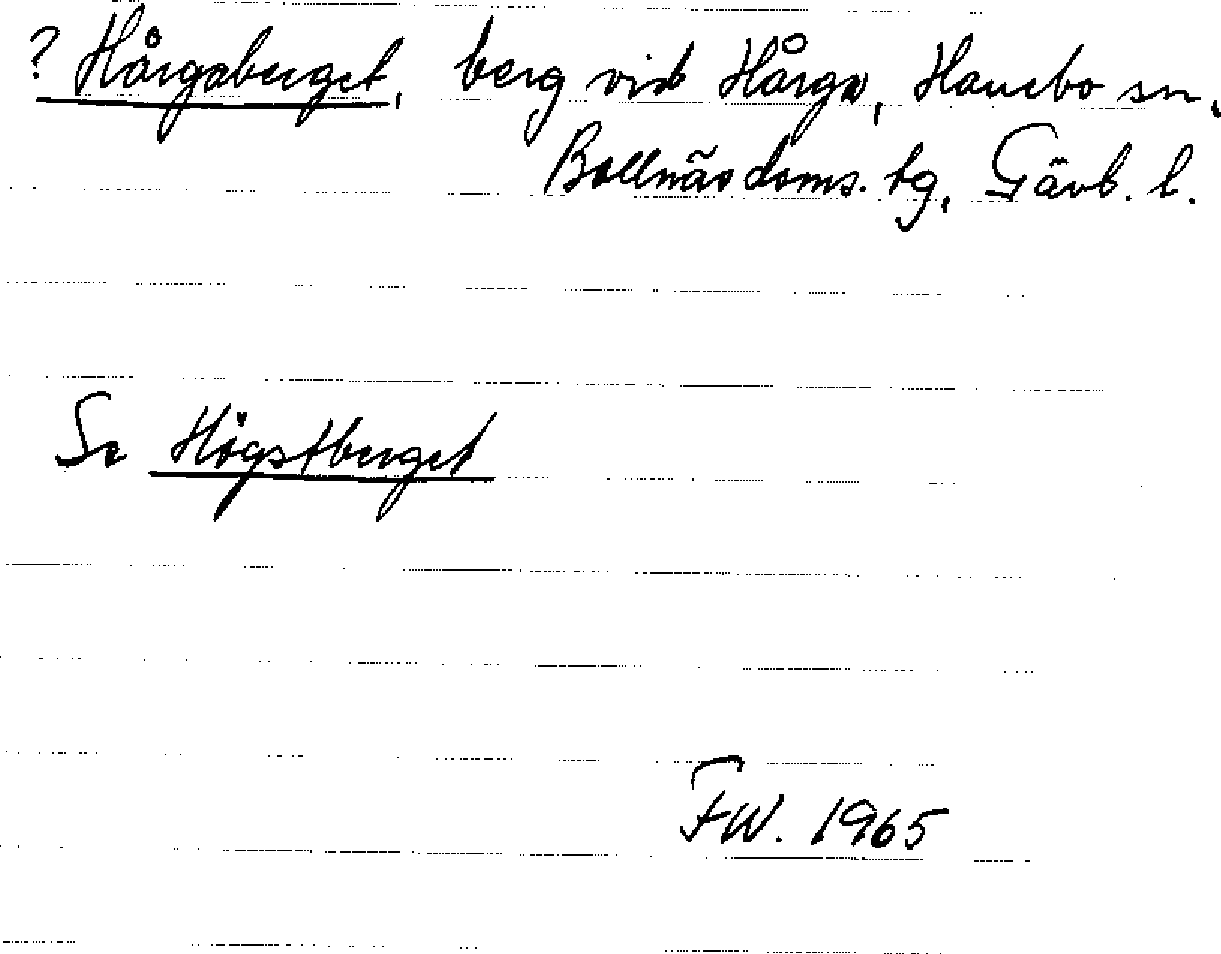 ? Hårgaberget, berg vid Hårga, Hanebo sn,
Bollnäs doms. tg, Gävb. l.
Se Högstberget
FW. 1965